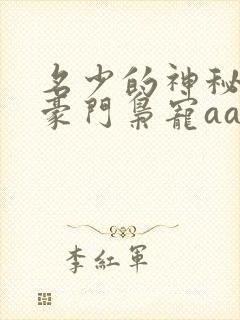 名少的神秘
豪門梟寵aa
李紅軍